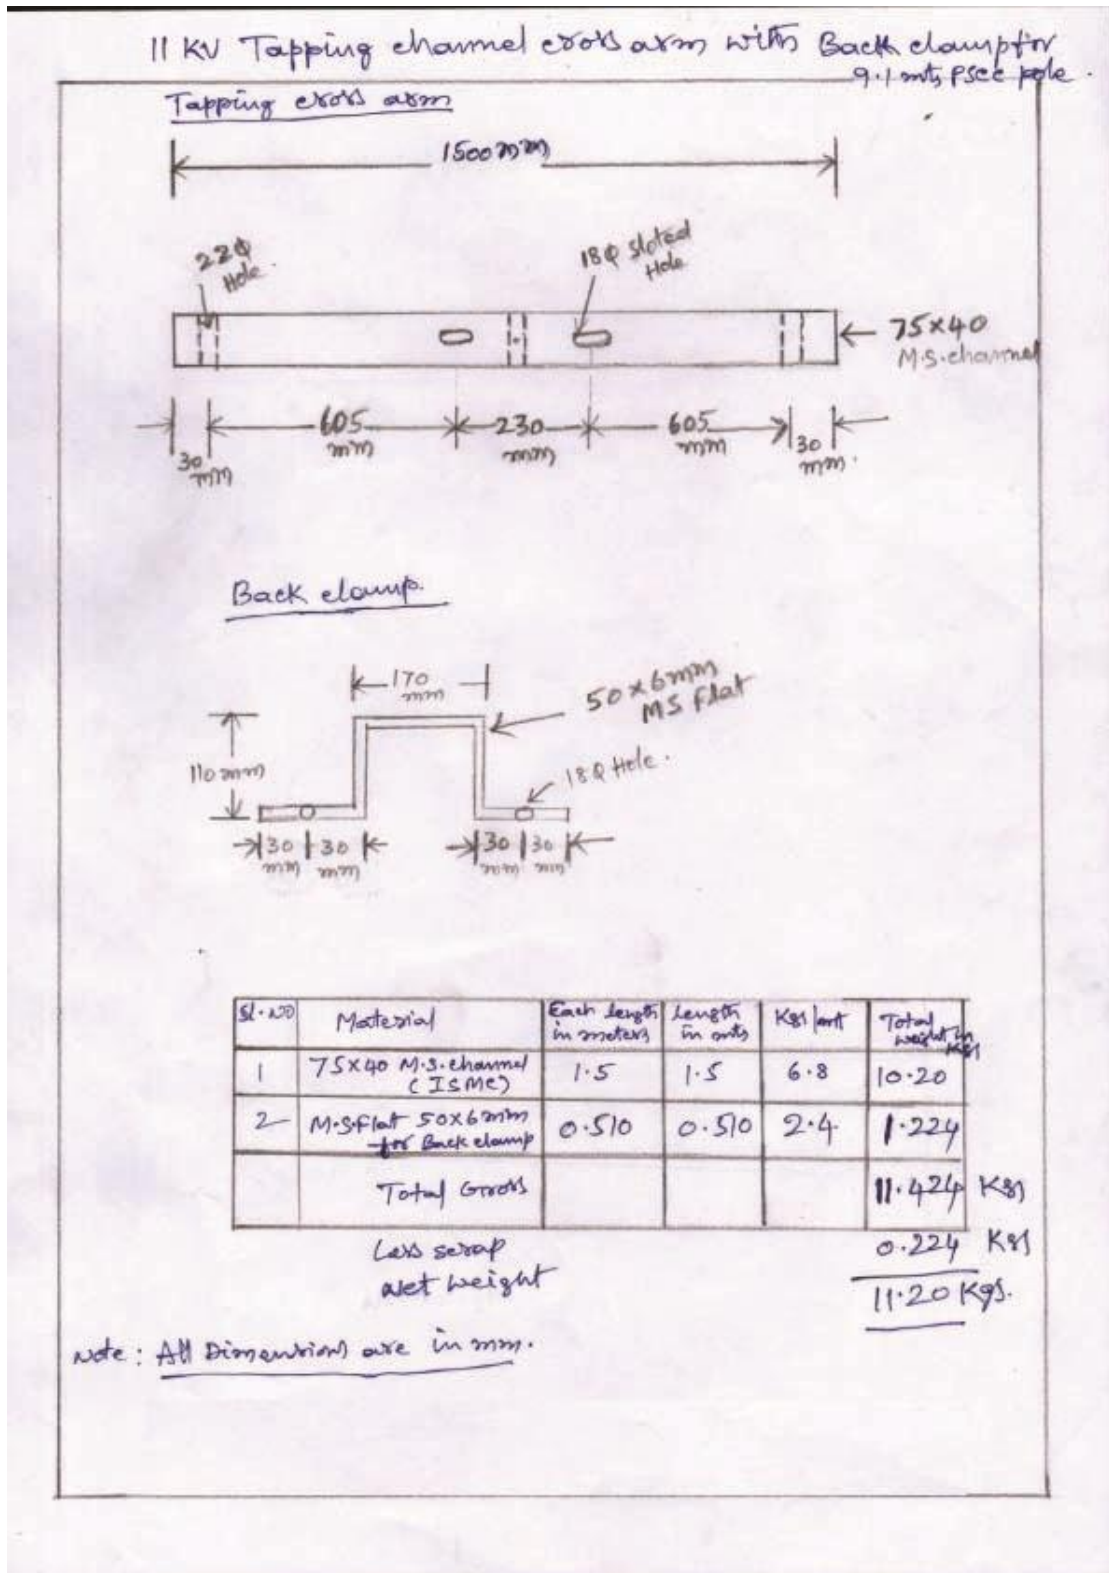 11 KV Tapping channel cross arm with Back clamp for
9.1 mts PSCC pole.
Tapping cross arm
1500 mm
22φ
Hole.
18φ Sloted
Hole
75×40
M.S. channel
605
mm
230
mm
605
mm
30
mm
30
mm.
Back clamp.
170
mm
50×6mm
MS Flat
110 mm
18φ Hole.
30 30 30 30
mm mm mm mm
Sl.NO Material Each length in meters Length in mts Kgs/mt Total weight in Kgs
1 75×40 M.S. channel (ISMC) 1.5 1.5 6.8 10.20
2 M.S.Flat 50×6mm for Back clamp 0.510 0.510 2.4 1.224
Total Gross 11.424 Kgs
Less scrap 0.224 Kgs
Net weight 11.20 Kgs.
Note: All Dimensions are in mm.